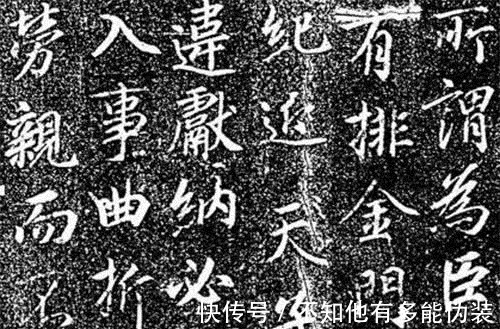 所謂為臣
有排金門
紀近天
違獻納必
入事曲折
勞親而
快传号/不知他有多能伪装